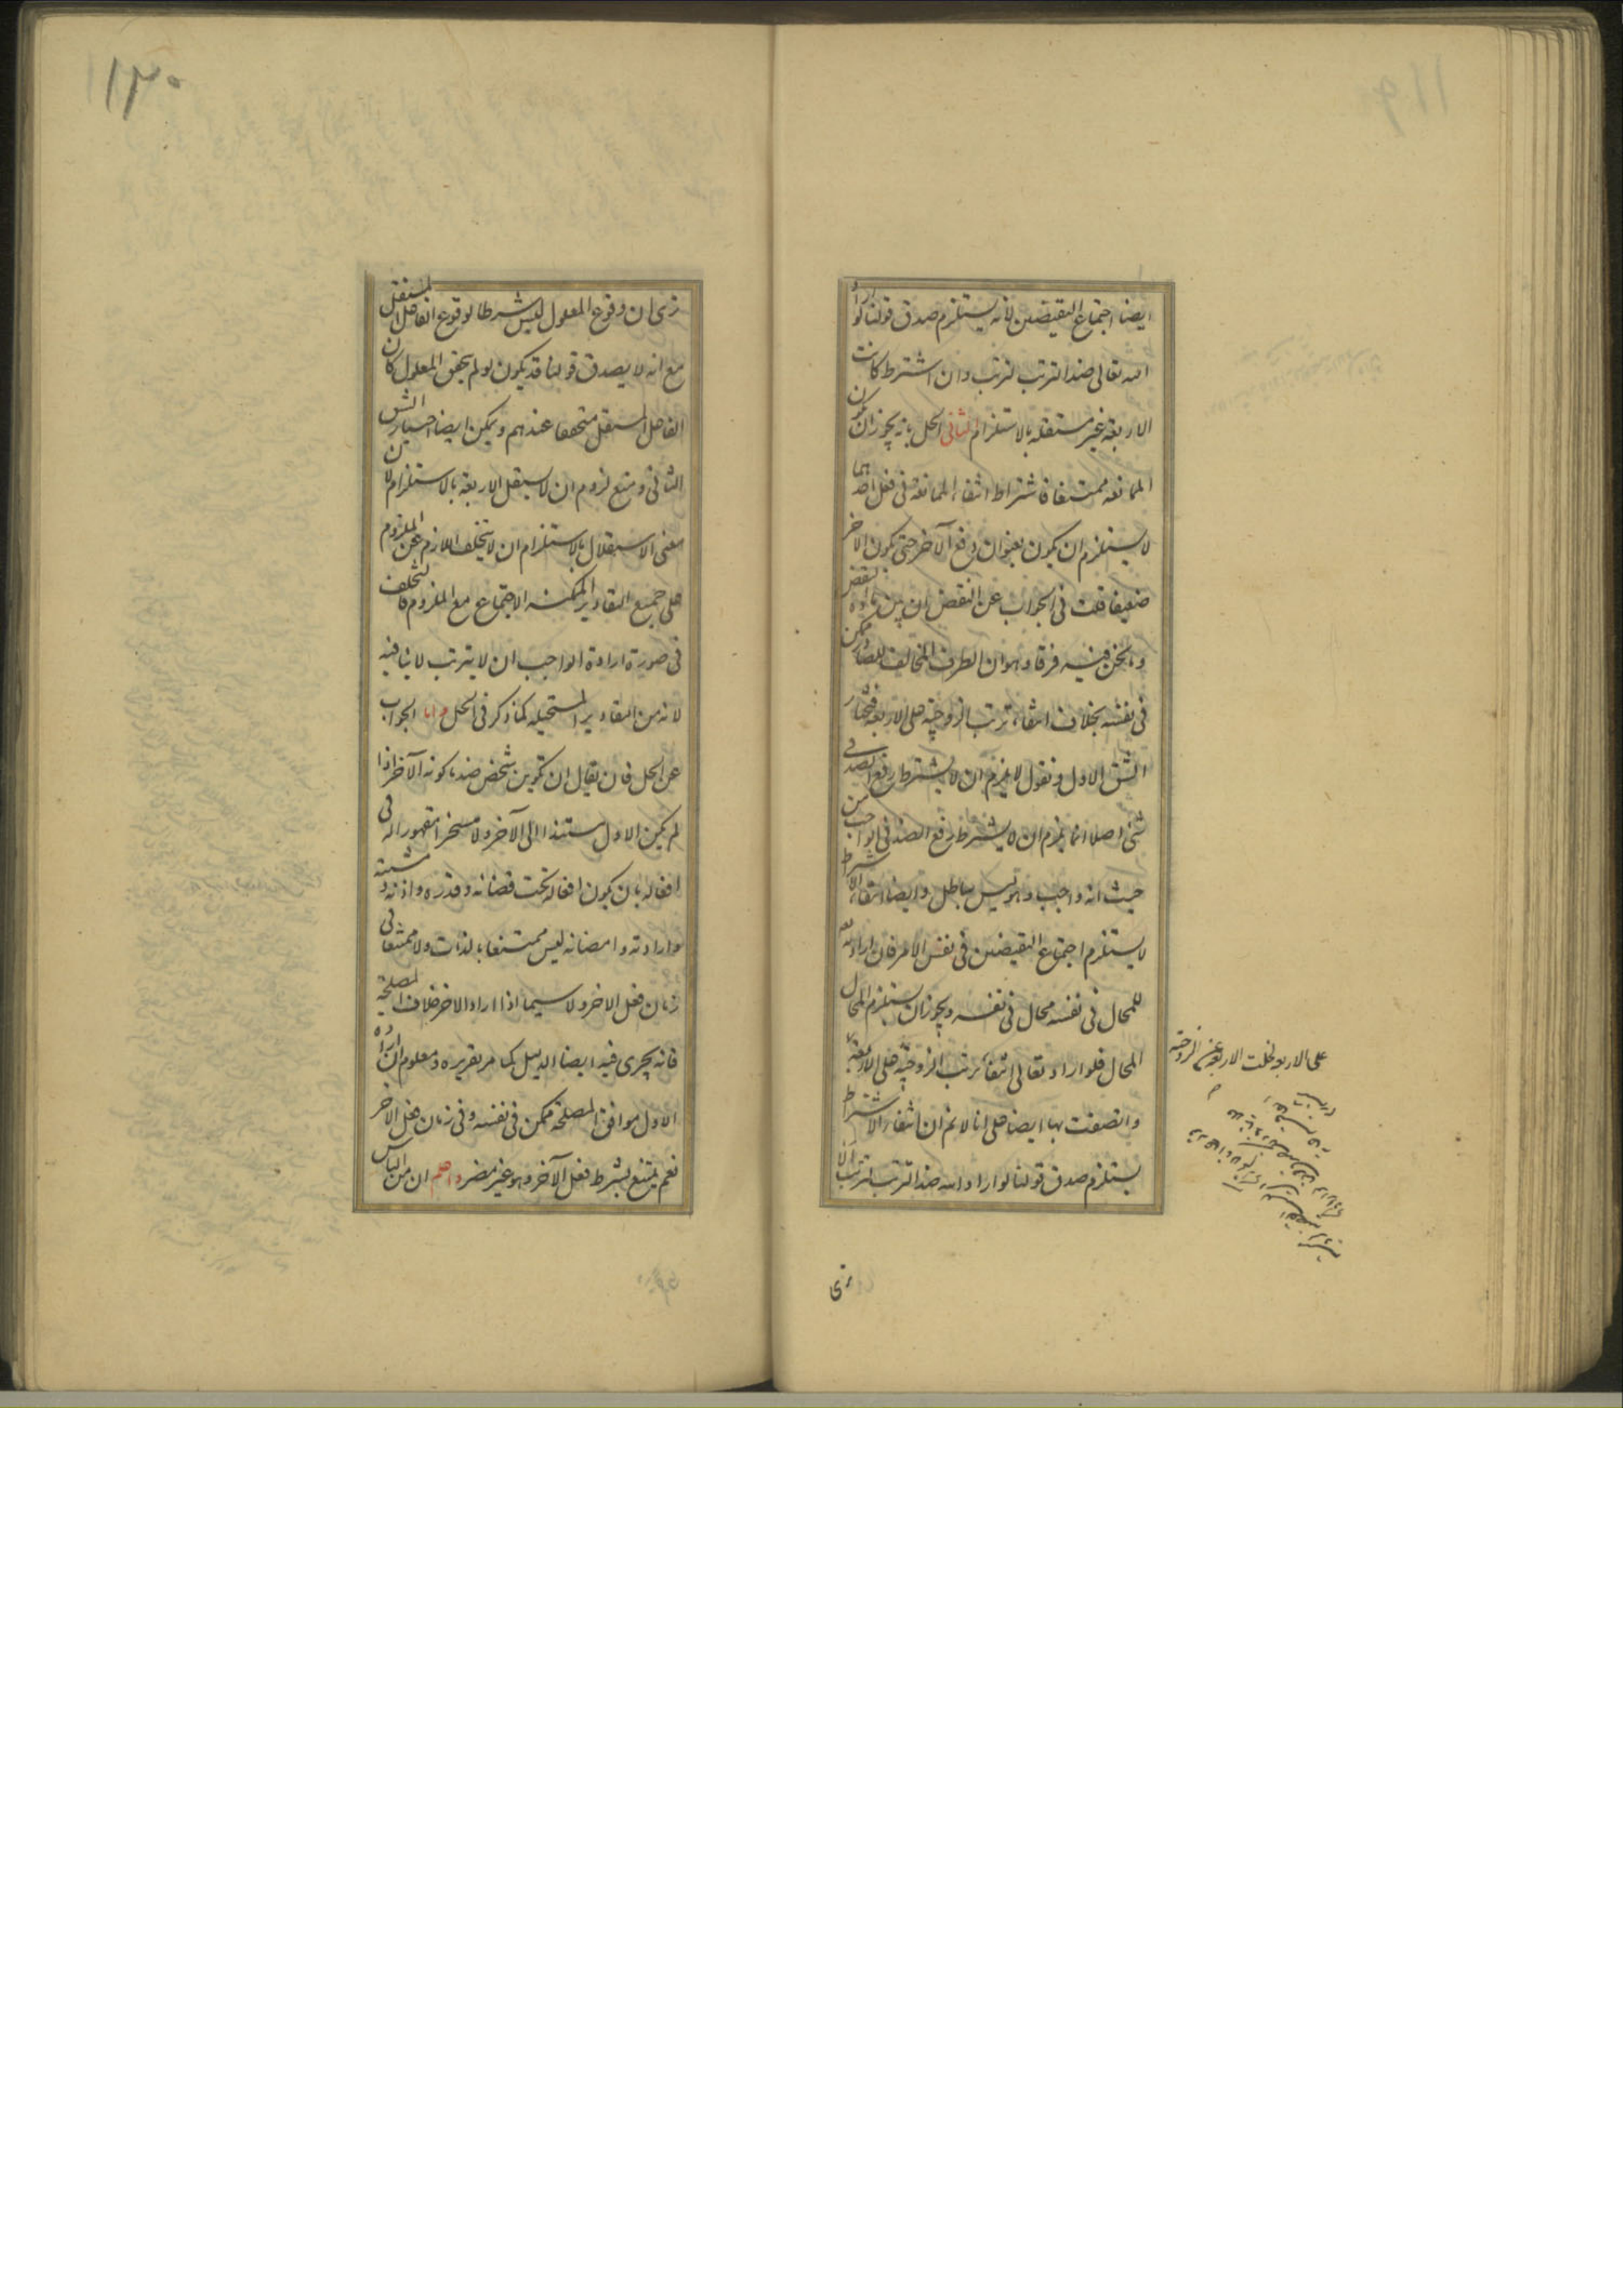 ايضا اجتماع النقيضين لانه يستلزم صدق قولنا لو اراد
الله تعالى ضد الترتب لترتب وان اشترط كانت
الاربعة غير مستقلة بالاستلزام الثانى الحل بانه يجوز ان يكون
الممانعة ممتنعا فاشتراط انتفاء الممانعة فى فعل احدهما
لا يستلزم ان يكون بعنوان دفع الآخر حتى يكون الآخر
ضعيفا قلت فى الجواب عن النقض ان بين مادة النقض
وما نحن فيه فرقا وهو ان الطرف المخالف للصادر ممكن
فى نفسه بخلاف انتفاء ترتب الزوجية على الاربعة فنختار
الشق الاول ونقول لا يلزم ان لا يشترط رفع الضد فى
شئ اصلا انما يلزم ان لا يشترط رفع الضد فى الواجب من
حيث انه واجب وهو ليس بباطل وايضا انتفاء الاشتراط
لا يستلزم اجتماع النقيضين فى نفس الامر فان ارادته
للمحال فى نفسه محال فى نفسه ويجوز ان يستلزم المحال
المحال فلو اراد تعالى انتفاء ترتب الزوجية على الاربعة
واتصفت بها ايضا على انا لا نم ان انتفاء الاشتراط
يستلزم صدق قولنا لو اراد الله ضد الترتب لترتب الا
ترى
على الاربعة لخلت الاربعة عن الزوجية
ترى ان وقوع المعلول ليس شرطا لوقوع الفاعل المستقل
مع انه لا يصدق قولنا قد يكون لو لم يتحقق المعلول كان
الفاعل المستقل متحققا عندهم ويمكن ايضا اختيار الشق
الثانى ومنع لزوم ان لا يستقل الاربعة بالاستلزام لان
معنى الاستقلال بالاستلزام ان لا يتخلف اللازم عن الملزوم
على جميع التقادير الممكنة الاجتماع مع الملزوم فالتخلف
فى صورة ارادة الواجب ان لا يترتب لا ينافيه
لانه من التقادير المستحيلة كما ذكر فى الحل واما الجواب
عن الحل فان يقال ان تكوين شخص ضد ما كونه الآخر اذا
لم يكن الاول مستندا الى الآخر ولا مسخرا مقهورا له فى
افعاله بان يكون افعاله تحت قضائه وقدره واذنه ومشيته
وارادته وامضائه ليس ممتنعا بالذات ولا ممتنعا فى
زمان فعل الاخر ولا سيما اذا اراد الاخر خلاف المصلحة
فانه يجرى فيه ايضا الدليل كما مر تقريره ومعلوم ان ارادة
الاول موافق المصلحة ممكن فى نفسه وفى زمان فعل الآخر
نعم يمتنع بشرط فعل الآخر وهو غير مضر واعلم ان من الناس
١٢٠